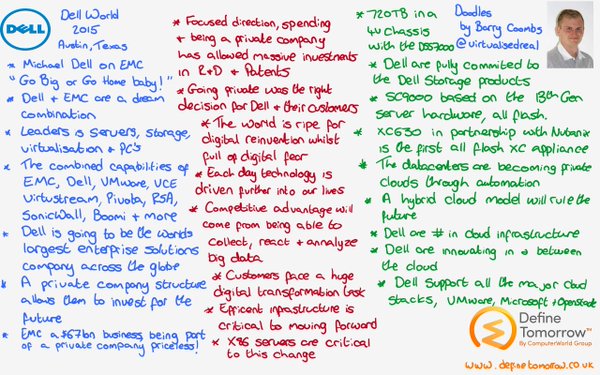 DELL
Dell World
2015
Austin, Texas
* Michael Dell on EMC
"Go Big or Go Home baby!"
* Dell + EMC are a dream
combination
* Leaders is Servers, storage,
virtualisation + PC's
* The combined capabilities of
EMC, Dell, VMware, VCE
Virtustream, Pivota, RSA,
SonicWall, Boomi + more
* Dell is going to be the worlds
largest enterprise solutions
company across the globe
* A private company structure
allows them to invest for the
future
* EMC a $67bn business being part
of a private company priceless!
* Focused direction, spending
+ being a private company
has allowed massive investments
in R+D + Patents
* Going private was the right
decision for Dell + their customers
* The world is ripe for
digital reinvention whilst
full of digital fear
* Each day technology is
driven further into our lives
* Competitive advantage will
come from being able to
collect, react + annalyze
big data
* Customers face a huge
digital transformation task
* Efficent infrastructure is
critical to moving forward
* X86 servers are critical
to this change
* 720TB in a
4U chassis
with the DSS7000
* Dell are fully commited to
the Dell Storage products
* SC9000 based on the 13th Gen
server hardware, all flash.
* XC630 in partnership with Nutanix
is the first all flash XC appliance
* The datacenters are becoming private
clouds through automation
* A hybrid cloud model will rule the
future
* Dell are # in cloud infrastructure
* Dell are innovating in + between
the cloud
* Dell support all the major cloud
stacks, VMware, Microsoft + Openstack
Doodles
by Barry Coombs
@virtualisedreal
Define
Tomorrow™
By ComputerWorld Group
www.definetomorrow.co.uk